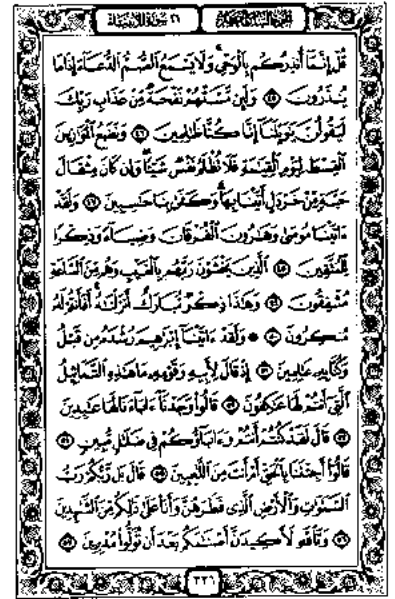 الجزء السابع عشر
٢١ سورة الأنبياء
قُلْ إِنَّمَآ أُنذِرُكُم بِٱلْوَحْىِ ۚ وَلَا يَسْمَعُ ٱلصُّمُّ ٱلدُّعَآءَ إِذَا مَا
يُنذَرُونَ ٤٥ وَلَئِن مَّسَّتْهُمْ نَفْحَةٌ مِّنْ عَذَابِ رَبِّكَ
لَيَقُولُنَّ يَـٰوَيْلَنَآ إِنَّا كُنَّا ظَـٰلِمِينَ ٤٦ وَنَضَعُ ٱلْمَوَٰزِينَ
ٱلْقِسْطَ لِيَوْمِ ٱلْقِيَـٰمَةِ فَلَا تُظْلَمُ نَفْسٌ شَيْـًٔا ۖ وَإِن كَانَ مِثْقَالَ
حَبَّةٍ مِّنْ خَرْدَلٍ أَتَيْنَا بِهَا ۗ وَكَفَىٰ بِنَا حَـٰسِبِينَ ٤٧ وَلَقَدْ
ءَاتَيْنَا مُوسَىٰ وَهَـٰرُونَ ٱلْفُرْقَانَ وَضِيَآءً وَذِكْرًا
لِّلْمُتَّقِينَ ٤٨ ٱلَّذِينَ يَخْشَوْنَ رَبَّهُم بِٱلْغَيْبِ وَهُم مِّنَ ٱلسَّاعَةِ
مُشْفِقُونَ ٤٩ وَهَـٰذَا ذِكْرٌ مُّبَارَكٌ أَنزَلْنَـٰهُ ۚ أَفَأَنتُمْ لَهُۥ
مُنكِرُونَ ٥٠ ۞ وَلَقَدْ ءَاتَيْنَآ إِبْرَٰهِيمَ رُشْدَهُۥ مِن قَبْلُ
وَكُنَّا بِهِۦ عَـٰلِمِينَ ٥١ إِذْ قَالَ لِأَبِيهِ وَقَوْمِهِۦ مَا هَـٰذِهِ ٱلتَّمَاثِيلُ
ٱلَّتِىٓ أَنتُمْ لَهَا عَـٰكِفُونَ ٥٢ قَالُوا۟ وَجَدْنَآ ءَابَآءَنَا لَهَا عَـٰبِدِينَ
٥٣ قَالَ لَقَدْ كُنتُمْ أَنتُمْ وَءَابَآؤُكُمْ فِى ضَلَـٰلٍ مُّبِينٍ ٥٤
قَالُوٓا۟ أَجِئْتَنَا بِٱلْحَقِّ أَمْ أَنتَ مِنَ ٱللَّـٰعِبِينَ ٥٥ قَالَ بَل رَّبُّكُمْ رَبُّ
ٱلسَّمَـٰوَٰتِ وَٱلْأَرْضِ ٱلَّذِى فَطَرَهُنَّ وَأَنَا۠ عَلَىٰ ذَٰلِكُم مِّنَ ٱلشَّـٰهِدِينَ
٥٦ وَتَٱللَّهِ لَأَكِيدَنَّ أَصْنَـٰمَكُم بَعْدَ أَن تُوَلُّوا۟ مُدْبِرِينَ ٥٧